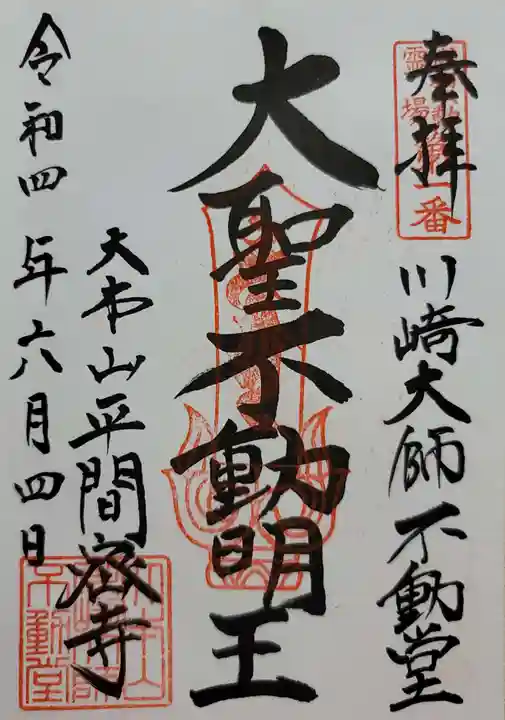 奉拝
霊場
一番
川崎大師不動堂
大聖不動明王
大本山平間寺
令和四年六月四日
不動堂